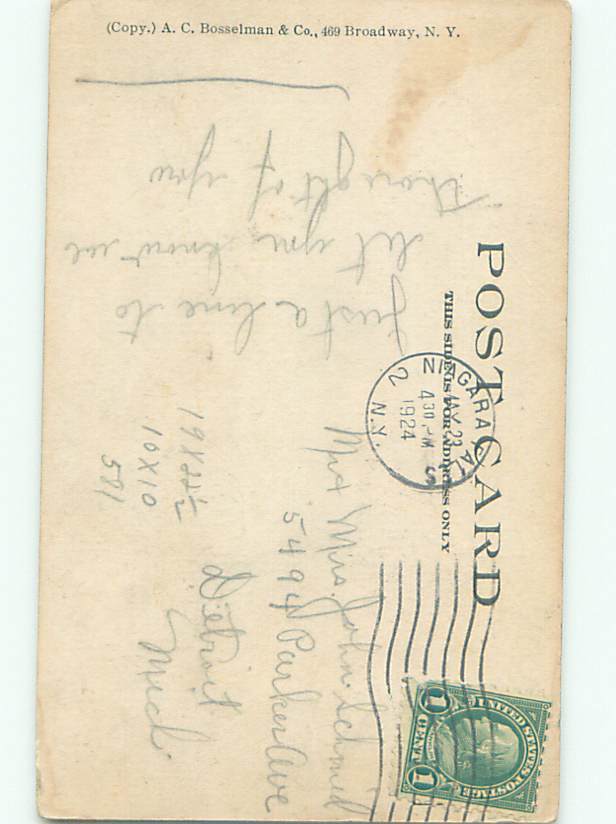 (Copy.) A. C. Bosselman & Co., 469 Broadway, N. Y.
POST CARD
THIS SIDE IS FOR ADDRESS ONLY
NIAGARA FALLS
MAY 23
4 30 PM
1924
2 N.Y.
UNITED STATES POSTAGE
1 CENT 1
Just a line to
let you know we
thought of you
Mr + Mrs. John Schmid
5494 Parker Ave
Detroit
Mich
19 X 22 1/2
10 X 10
581